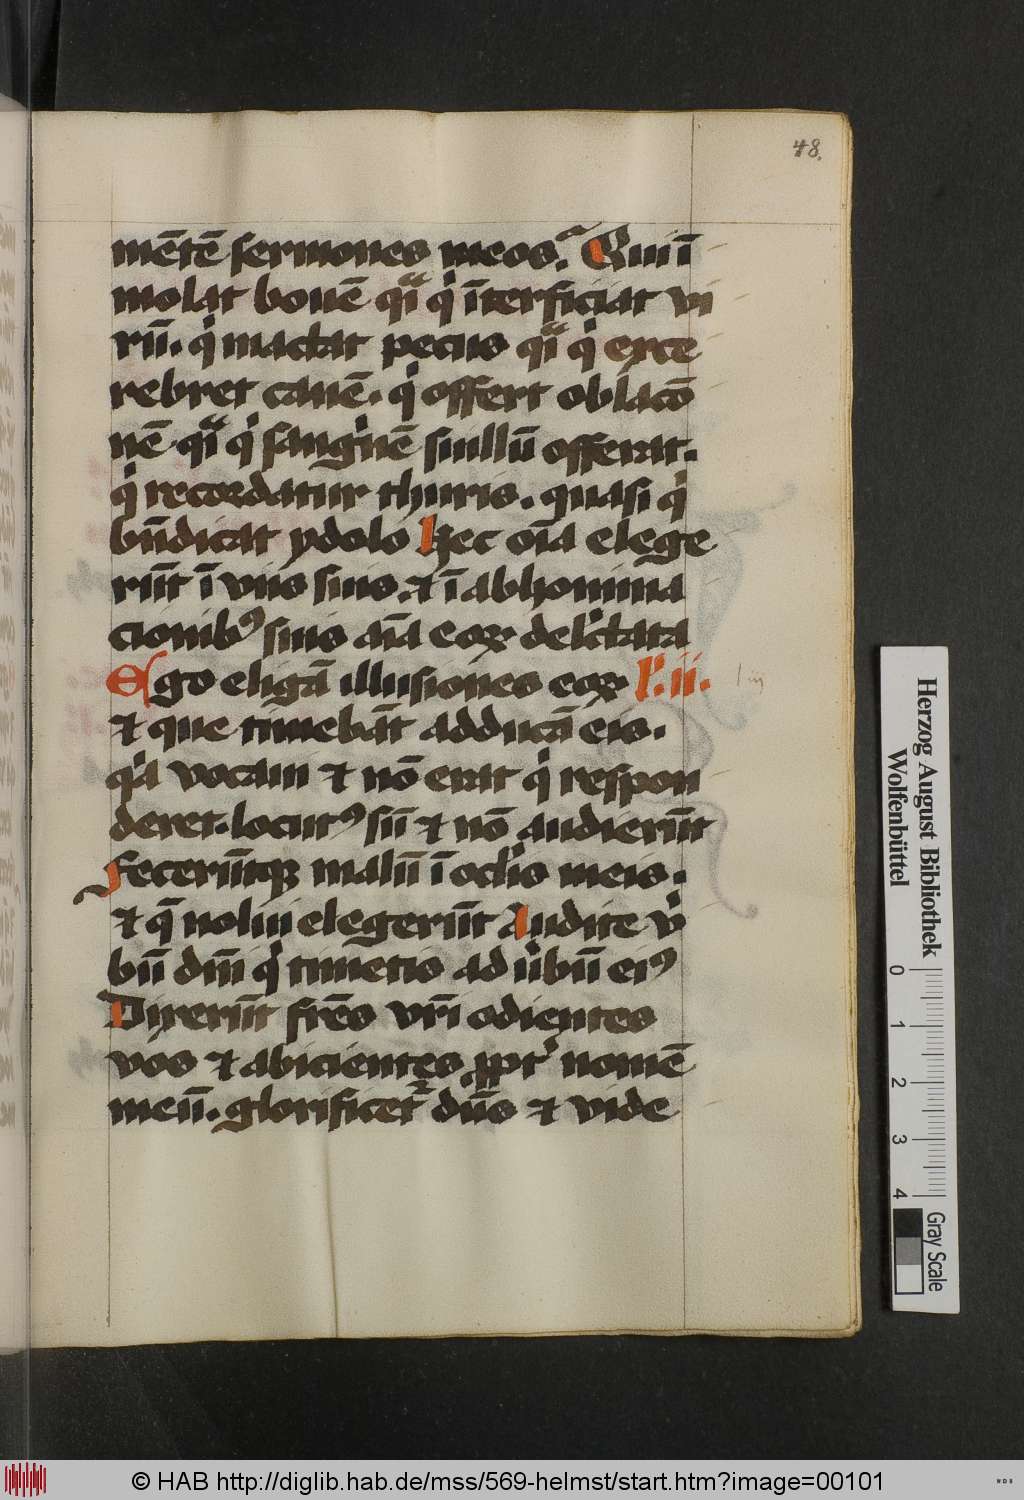 48.
mētē sermones meos. Qui ī
molat bouē qͣi qͥ īterficiat vi
rū. qͥ mactat pecus qͣi qͥ exce
rebret canē. qͥ offert oblacō
nē qͣi qͥ sangͥnē suillū offerat.
qͥ recordatur thuris. quasi qͥ
bn̄dicat ydolo Hec oīa elege
rūt ī viis suis. et ī abhomina
cionibꝰ suis aīa eoꝝ delc̄tata
Ego eligā illusiones eoꝝ l'. ii.
et que timebāt adducā eis.
qͥa vocaui et nō erat qͥ respon
deret. locutꝰ sū et nō audierūt
fecerūtqꝫ malū ī oclīs meis.
et q̄ nolui elegerūt Audite v̓
bū dn̄i qͥ timetis ad v̓bū eiꝰ
Dixerūt frēs vr̄i odientes
vos et abicientes ꝓpt̓ nomē
meū. glorificet᷑ dn̄s et vide
Herzog August Bibliothek
Wolfenbüttel
0 1 2 3 4
Gray Scale
© HAB http://diglib.hab.de/mss/569-helmst/start.htm?image=00101